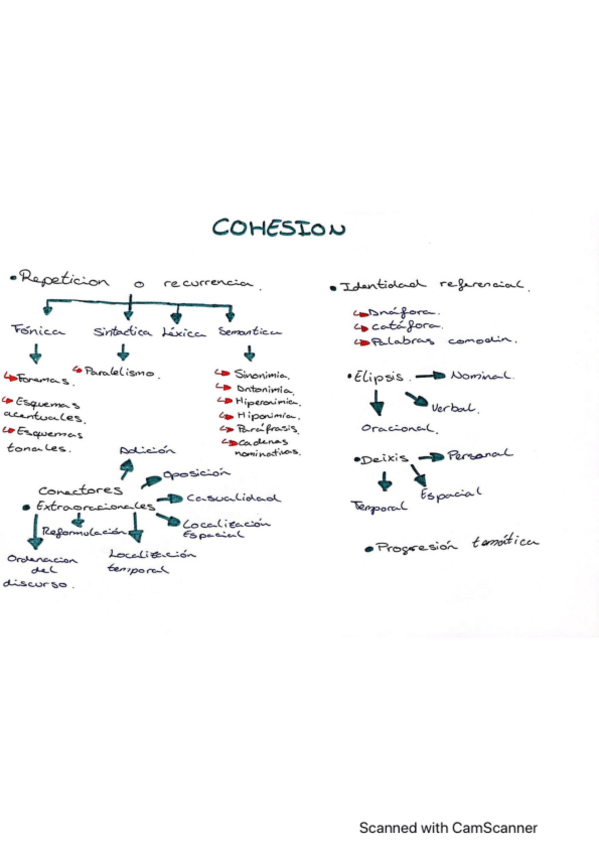 COHESION
•Repeticion o recurrencia.
Fónica Sintactica Léxica Semantica
Fonemas.
Esquemas
acentuales.
Esquemas
tonales.
Paralelismo.
Sinonimia.
Antonimia.
Hiperonimia.
Hiponimia.
Paráfrasis.
Cadenas
nominativas.
Conectores
• Extraoracionales
Adición
Oposición
Casualidad
Localización
Espacial
Localización
temporal
Reformulación
Ordenacion
del
discurso.
• Identidad referencial.
Anáfora.
Catáfora.
Palabras comodin.
•Elipsis. Nominal.
Verbal.
Oracional.
•Deixis Personal
Espacial
Temporal
• Progresión temática
Scanned with CamScanner